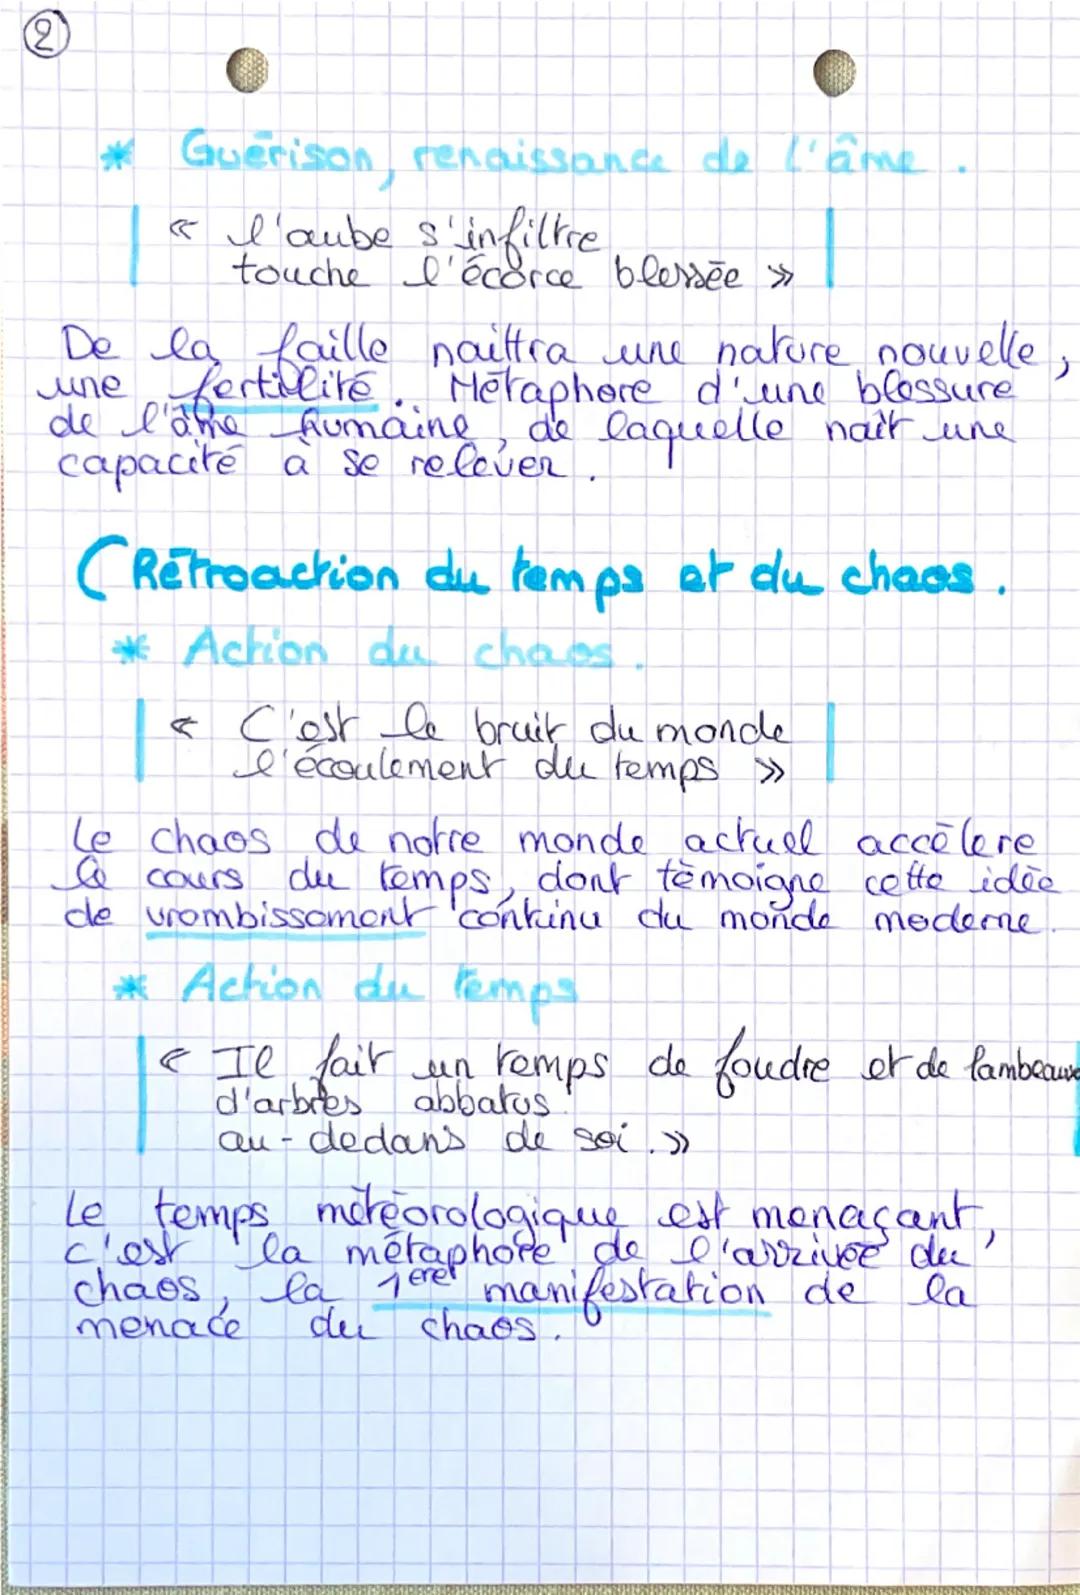 2
* Guérison, renaissance de l'âme.
« l'aube s'infiltre
touche l'écorce blessée »
De la faille naîttra une nature nouvelle,
une fertilité. Métaphore d'une blessure
de l'âme humaine, de laquelle naît une
capacité à se relever.
( Rétroaction du temps et du chaos.
* Action du chaos.
« C'est le bruit du monde
l'écoulement du temps »
Le chaos de notre monde actuel accélere
le cours du temps, dont témoigne cette idée
de vrombissement continu du monde moderne.
* Action du temps
« Il fait un temps de foudre et de lambeaux
d'arbres abbatus
au-dedans de soi. »
Le temps météorologique est menaçant,
c'est la métaphore de l'arrivée du
chaos, la 1ere manifestation de la
menace du chaos.